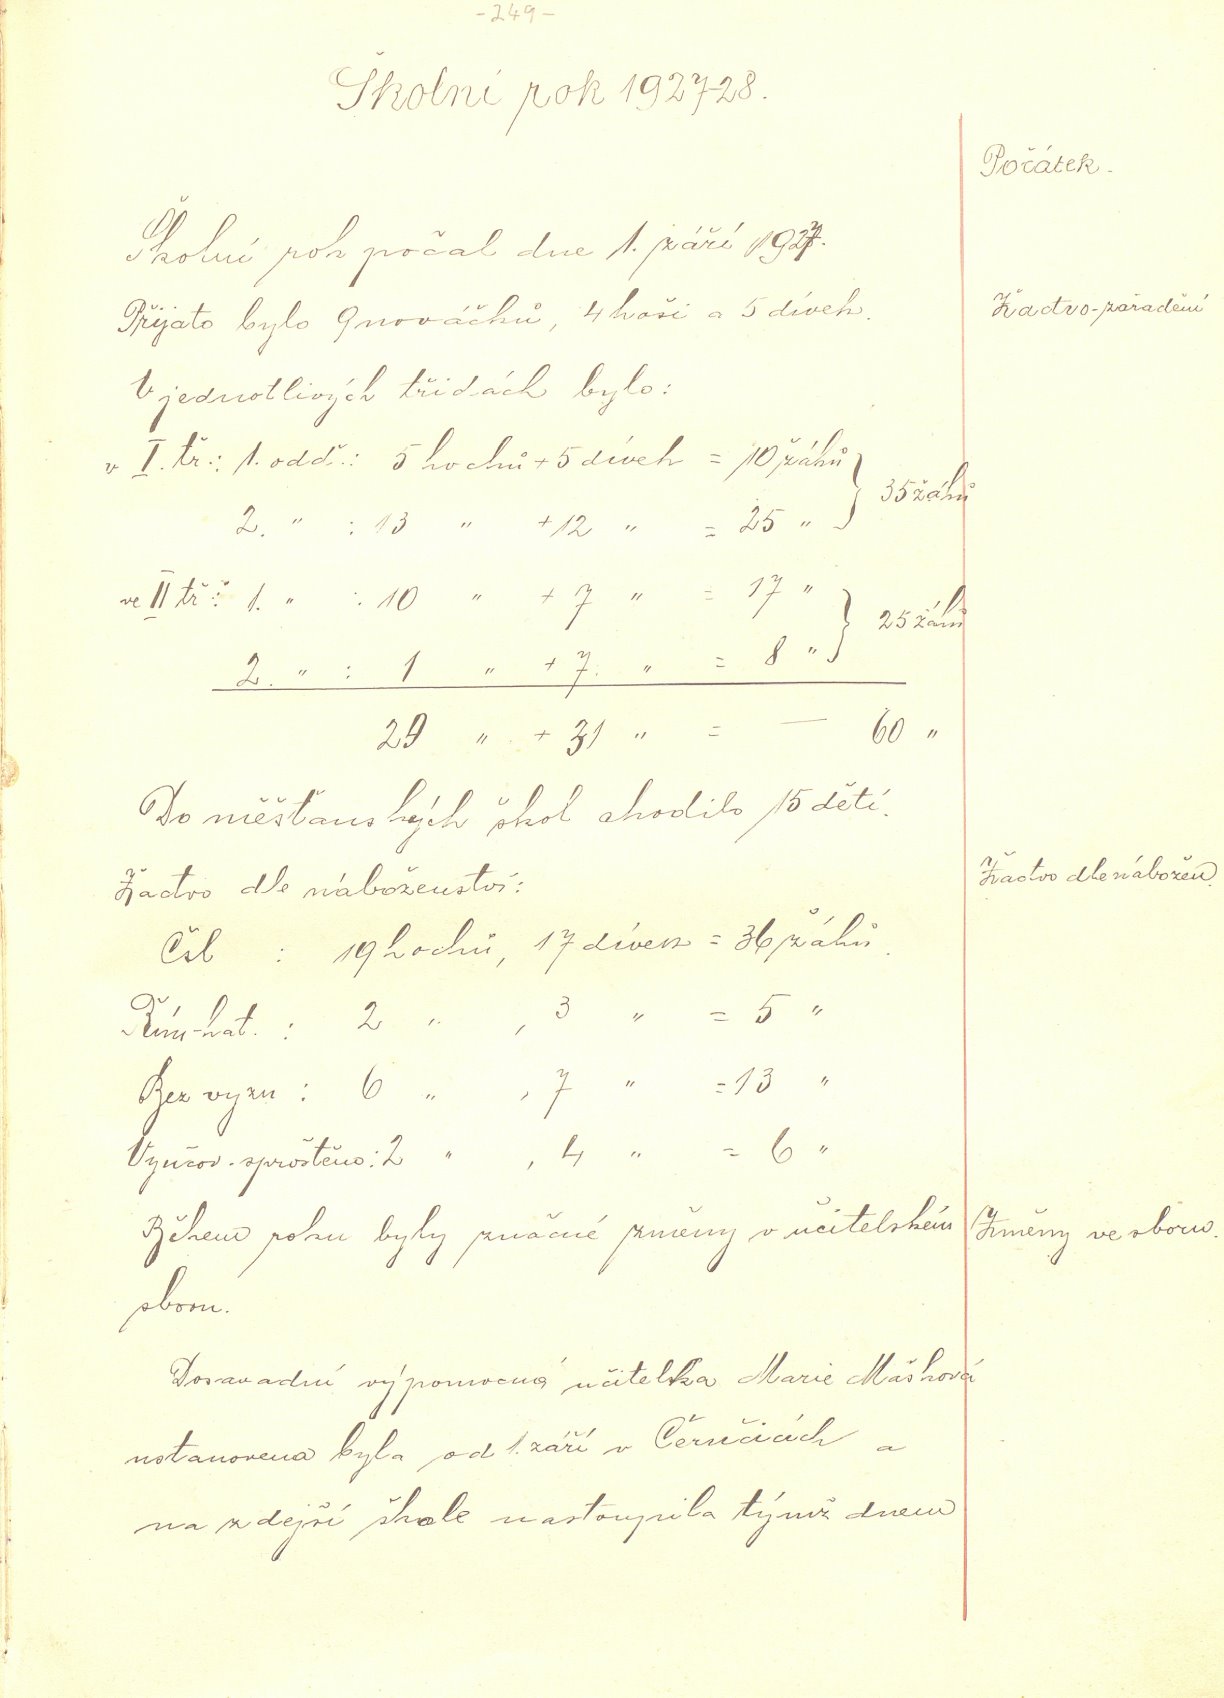 -249-
Školní rok 1927-28.
Počátek.
Školní rok počal dne 1. září 1927.
Přijato bylo 9 nováčků, 4 hoši a 5 dívek.
Žactvo-zařadění
V jednotlivých třídách bylo:
v I. tř.: 1. odd.: 5 hochů + 5 dívek = 10 žáků
35 žáků
2. " : 13 " + 12 " = 25 "
ve II tř.: 1. " : 10 " + 7 " = 17 "
25 žáků
2. " : 1 " + 7. " = 8 "
29 " + 31 " = — 60 "
Do měšťanských škol chodilo 15 dětí.
Žactvo dle náboženství:
Žactvo dle nábožen.
Čsl : 19 hochů, 17 dívek = 36 žáků.
Řím-kat. : 2 " , 3 " = 5 "
Bez vyzn : 6 " , 7 " = 13 "
Vyučov. sproštěno: 2 " , 4 " = 6 "
Během roku byly značné změny v učitelském
Změny ve sboru.
sboru.
Dosavadní výpomocná učitelka Marie Mášková
ustanovena byla od 1. září v Černčicích a
na zdejší škole nastoupila týmž dnem